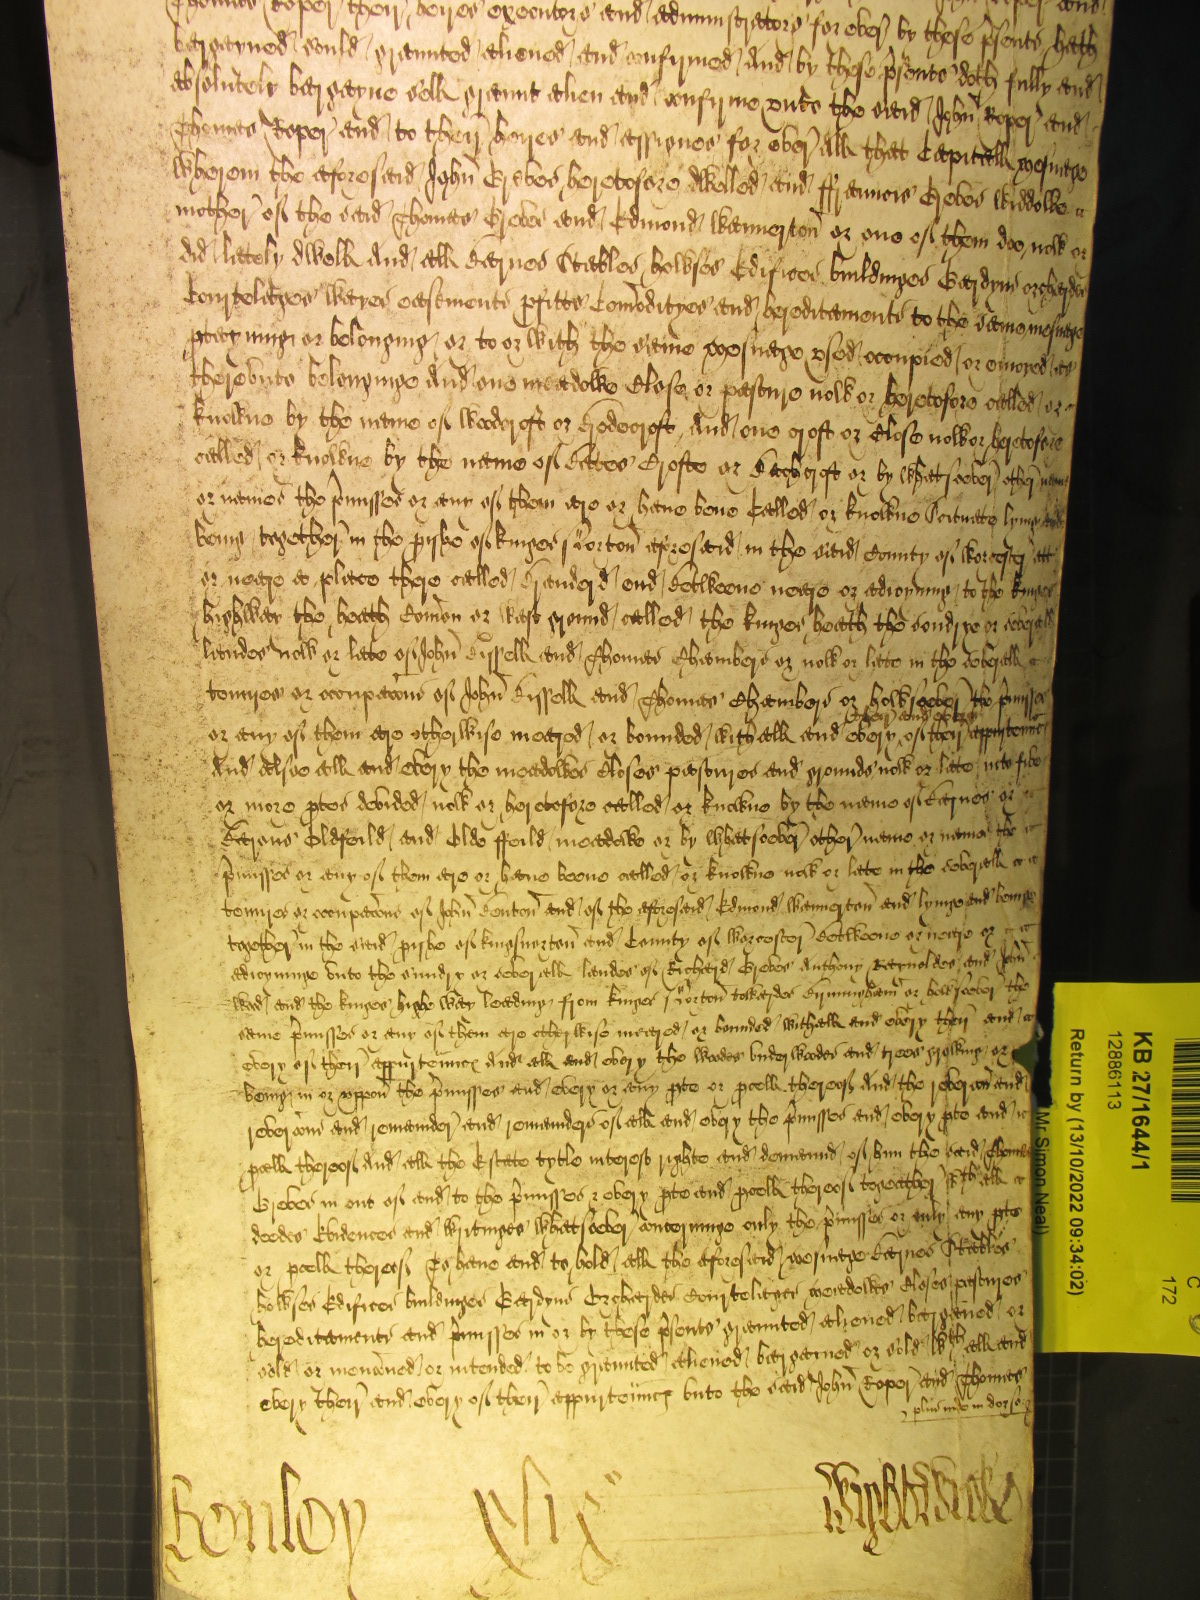 Thomas Roper their heires executors and administrators for ever by these psents hath
bargayned sould graunted aliened and confirmed And by these psents doth fully and
absolutely bargayne sell graunt alien and confirme unto the said John Roper and
Thomas Roper and to their heires and assignes for ever All that Capitall mesuage
wherein the aforesaid John Grebes heretofore dwelled and ffrauncis Grebes widdowe
mother of the said Thomas Grebes and Edmond Wannerton or one of them doe now or
did lately dwell And all Barnes Stables howses Edifices buildinges Gardyns orchardes
Courtelages wayes easments pfitts Comodityes and hereditaments to the same mesuage
ptayning or belonging or to or with the same mesuage used occupied or enioyed as
therevnto belonginge And one meadowe Close or pasture now or heretofore called or
knowne by the name of Woodcroft or Hodecroft And one croft or Close now or heretofore
called or knowne by the name of Battes Crofte or Batchcroft or by whatsoever other name
or names the pmisses or any of them are or have bene Called or knowne Scituate lying and
being together in the pishe of Kinges Norton aforesaid in the said County of Worcester att
or neare a place there called end Betweene neare or adioyning to the kinges
highway the heath Comon or wast ground called the kinges heath the sondrye or severall
landes now or late of John Bissell and Thomas Chambers or now or late in the severall
tenures or occupacons of John Bissell and Thomas Chambers or howsoever the pmisses
or any of them are otherwise meared or bounded withall and every of their appurtennces
their and every
And alsoe all and every the meadowes Closes pastures and grounds now or late into five
or more ptes devided now or heretofore called or knowne by the name of Barnes or
Barons Oldfeild and Olde ffeild meadowe or by whatsoever other name or names the
pmisses or any of them are or have beene called or knowne now or late in the severall
tenures or occupacons of John Benton and of the aforesaid Edmond Wannerton and lyinge and beinge
together in the said pishe of Kingsnorton and County of Worcester Betweene or neare or
adioyninge unto the sundry or severall landes of Richard Grebes Anthony Raynoldes and John
Wood and the kinges highe way leading from kinges Norton towardes Birmingham or howsoever the
same pmisses or any of them are otherwise meared or bounded withall and every their and
every of their appurtennces And all and every the woodes underwoodes and trees growing or
being in or uppon the pmisses and every or any pte or pcell thereof And the revercon and
revercons and remainder and remainders of all and every the pmisses and every pte and
pcell thereof And all the Estate tytle interest righte and demaund of him the said Thomas
Grebes in out of and to the pmisses & every pte and pcell thereof together wth all
deedes Evidences and writinges whatsoever concerninge only the pmisses or only any pte
or pcell thereof To have and to hold all the aforesaid mesuage Barnes Stables
howses Edifices buildinges Gardyns Orchardes Courtelages meadowes Closes pastures
hereditaments and pmisses in or by these psents graunted aliened bargained or
sold or menconed or intended to be graunted aliened bargained or sold wth all and
every their and every of their appurtennces unto the said John Roper and Thomas
plus inde in dorso
Henley xlix Wightwicke
KB 27/1644/1
12886113
Return by (13/10/2022 09:34:02)
Mr Simon Neal)
172